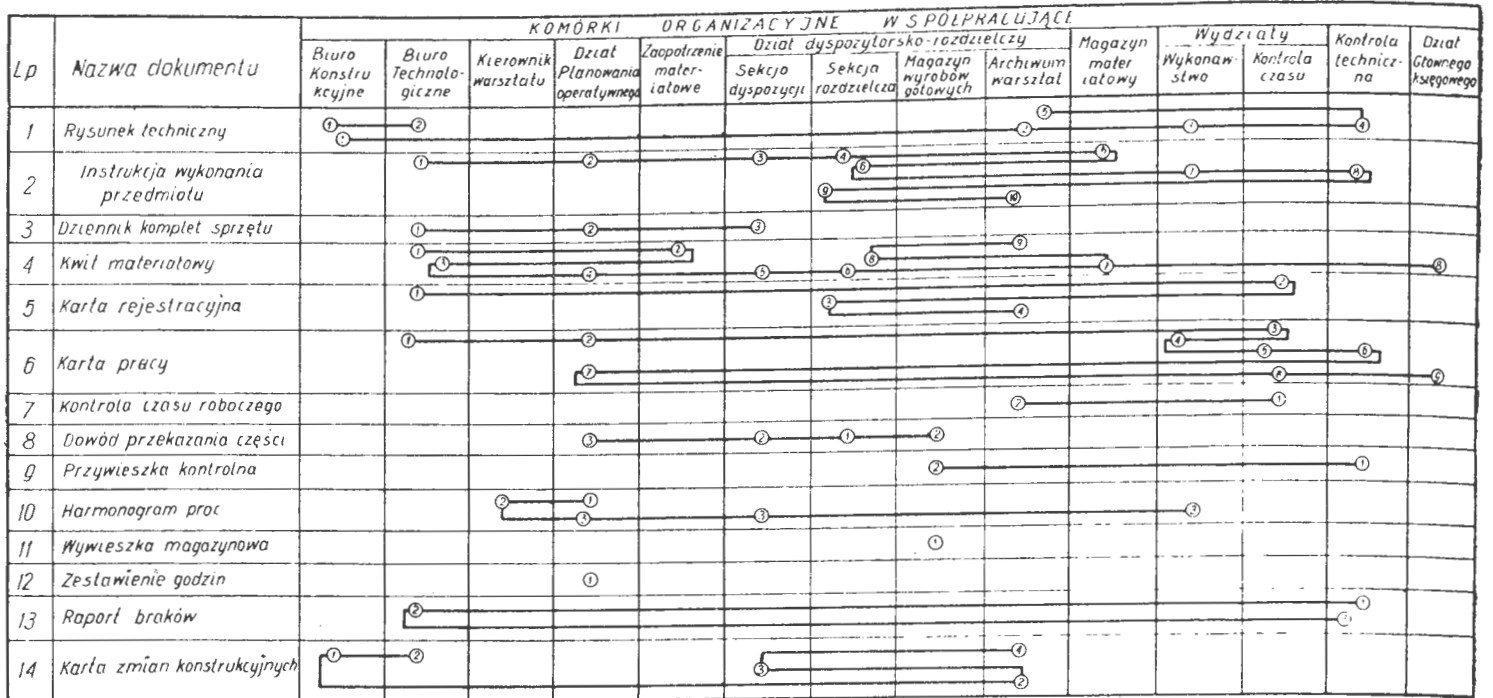 KOMÓRKI ORGANIZACYJNE WSPÓŁPRACUJĄCE
Lp
Nazwa dokumentu
Biuro Konstru kcyjne
Biuro Technolo- giczne
Kierownik warsztatu
Dział Planowania operatywnego
Zaopatrzenie mater- iałowe
Dział dyspozytorsko-rozdzielczy
Sekcja dyspozycji
Sekcja rozdzielcza
Magazyn wyrobów gotowych
Archiwum warsztat
Magazyn mater iałowy
Wydziały
Wykonaw- stwo
Kontrola czasu
Kontrola technicz- na
Dział Głównego księgowego
1 Rysunek techniczny 1 2 3 4
2 Instrukcja wykonania przedmiotu 1 2 3 4 5 6 8 9 10
3 Dziennik komplet sprzętu 1 2 3
4 Kwit materiałowy 1 2 3 4 5 6 7 8 8 9
5 Karta rejestracyjna 1 2 3 4
6 Karta pracy 1 2 3 4 5 6 7 8 9
7 Kontrola czasu roboczego 2 1
8 Dowód przekazania części 3 2 1 2
9 Przywieszka kontrolna 2 1
10 Harmonogram prac 2 1 3 3 3
11 Wywieszka magazynowa 1
12 Zestawienie godzin 1
13 Raport braków 2 1
14 Karta zmian konstrukcyjnych 1 2 3 4 2